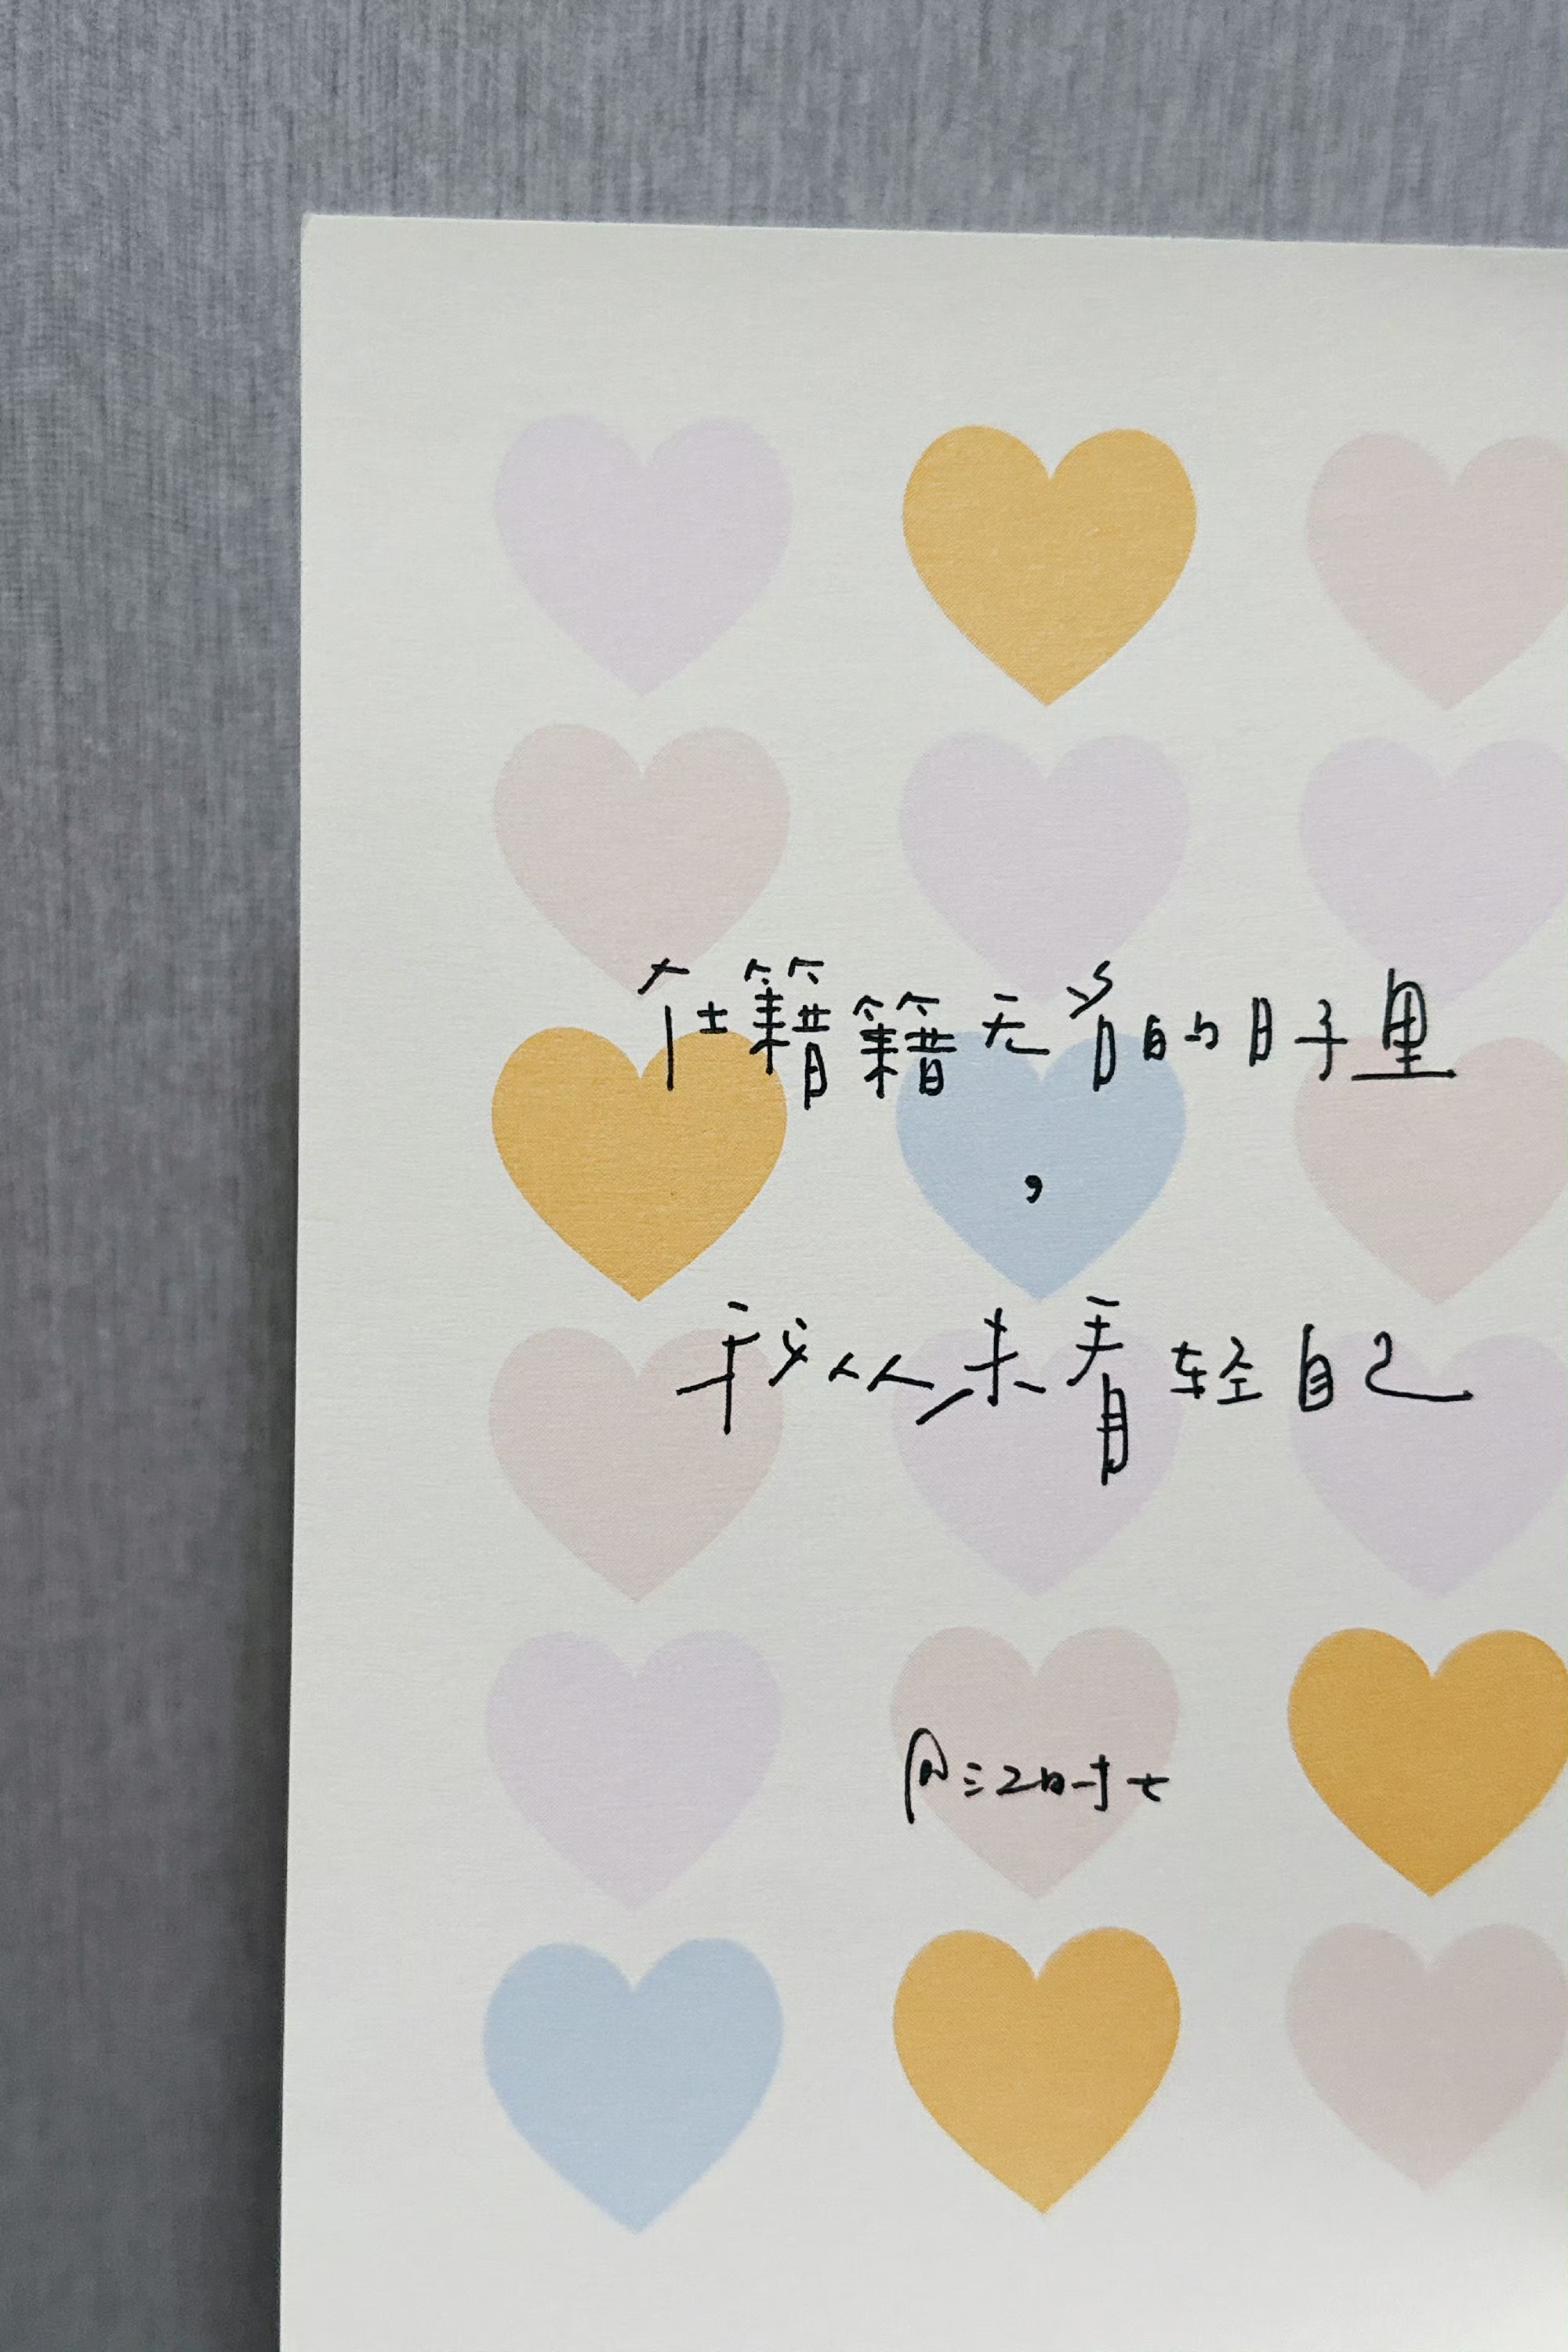 在籍籍无名的日子里
，
我从未看轻自己